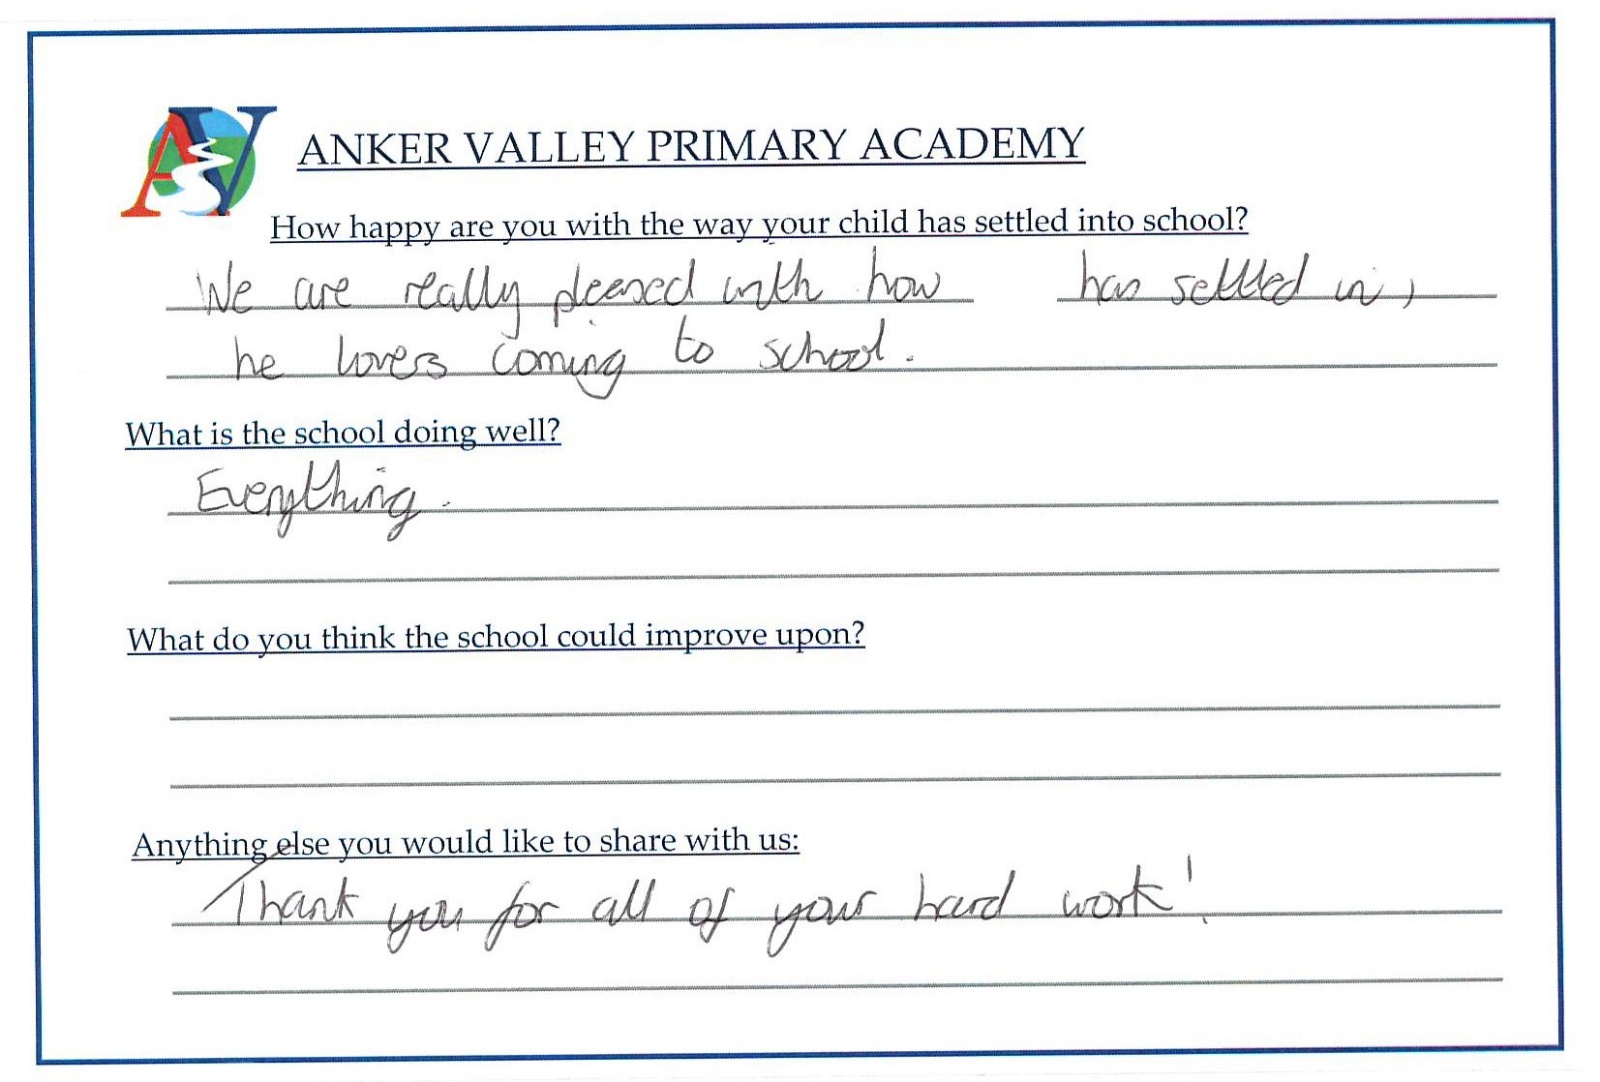 AV
ANKER VALLEY PRIMARY ACADEMY
How happy are you with the way your child has settled into school?
We are really pleased with how has settled in,
he loves coming to school.
What is the school doing well?
Everything.
What do you think the school could improve upon?
Anything else you would like to share with us:
Thank you for all of your hard work!